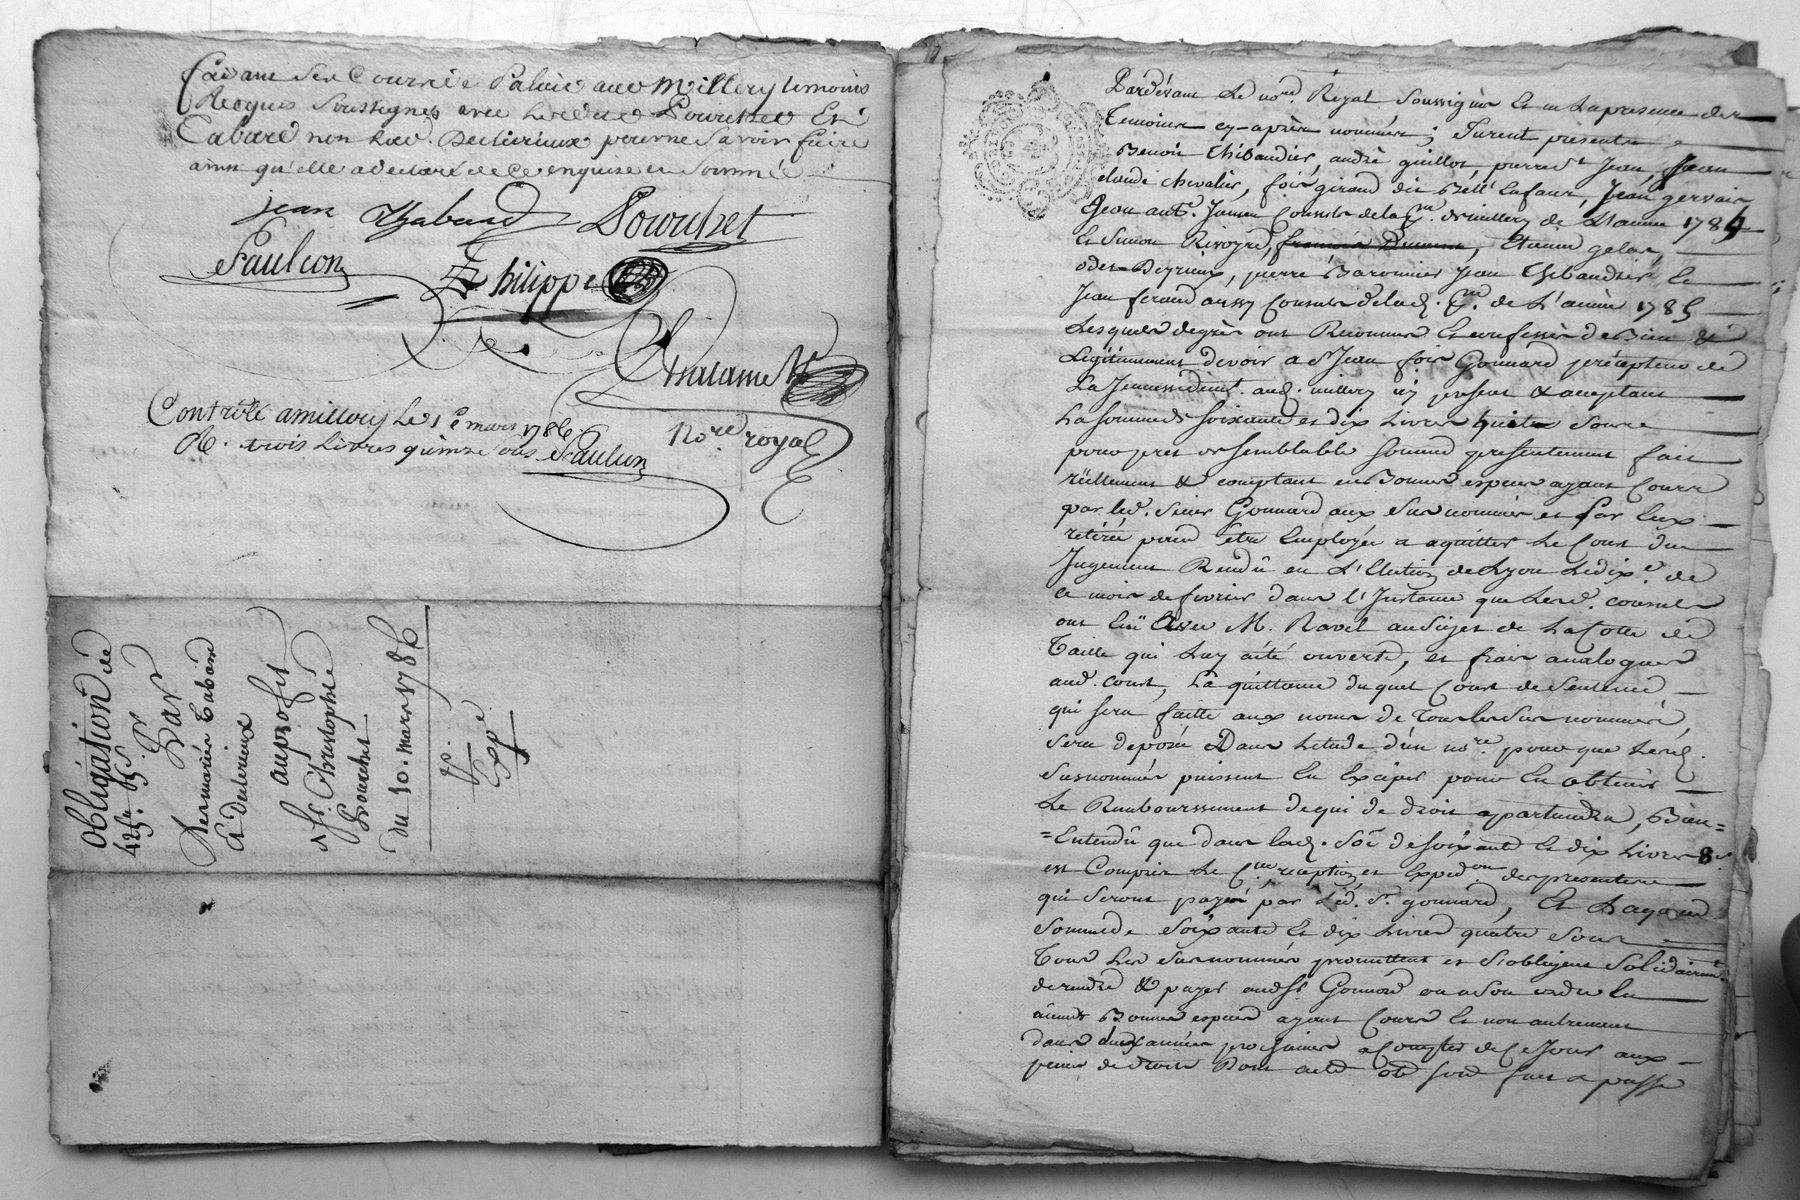 Recquis Soussignés avec Led. Pourchet Et
Cabard non lad. Decterieux pour ne Savoir faire
ainsi qu'elle a declaré de ce enquise et Sommée
jean Thabard Pourchet
Saulcon Philippe
Thalame
No.re royal
Controlé a millery Le 1e mars 1786.
R. trois Livres quinze sols Saulcon
Obligation de
Par
Cabard
Et Decterieux
au profit
Sr. Christophle
Pourchet
du 10. mars 1786
Expé.
Pardevant Le no.re Royal Soussigné Et en la presence des
Temoins cy-après nommés; furent presents
Benoit Thibaudier, andré guillot, pierre St Jean, Jean
claude chevalier, fois giraud dit Bell'Enfant, Jean gervais
Jean ant.e Consuls de la de millery de L'année 1784
Et Simon Rivoyre, , Etienne gelas,
odet Deyrieux, pierre Baronnier Jean Thibaudier Et
Jean ferrand aussy Consuls de lad. de L'année 1785
Lesquels de gré ont Reconnu Et confessé de Bien &
Légitimement devoir a Sr Jean fois Gonnard précepteur de
La Jeunesse dem.t aud. millery icy present & acceptant
La somme de soixante et dix Livres quatre Sous
pour pret de semblable somme presentement fait
réellement & comptant en Bonnes especes ayant Cours
par led. Sieur Gonnard aux Sus nommés et par Eux
retirée pour etre Employée a aquitter Le Cout du
Jugement Rendû en L'Election de Lyon Le dix.e de
ce mois de fevrier dans l'Instance que Lesd. consuls
ont Eüe Avec M. Ravel au Sujet de La Cotte de
Taille qui Luy a été ouverte, et frais analogues
aud. cout, La quittance duquel Cout de Sentence
qui sera faitte aux noms de Tous les Sus nommés,
sera deposée Dans L'etude d'un no.re pour que Lesd.
Susnommés puissent En Exciper pour En obtenir
Le Remboursement de qui de droit apartiendra, Bien=
=Entendû que dans lad. Soe de soixante Et dix Livres 8s.
est Compris Le C. reception et Exped.on des presentes
qui Seront payés par Led. Sr. gonnard, Et Laquelle
Somme de Soixante Et dix Livres quatre Sous
Tous Les Susnommés promettent et S'obligent Solidairem.t
de rendre & payer aud. Sr. Gonnard ou a Son ordre En
Bonnes especes ayant Cours Et non autrement
dans deux années prochaines a Compter de Ce Jour aux
peines de droit Dont acte fait & passé